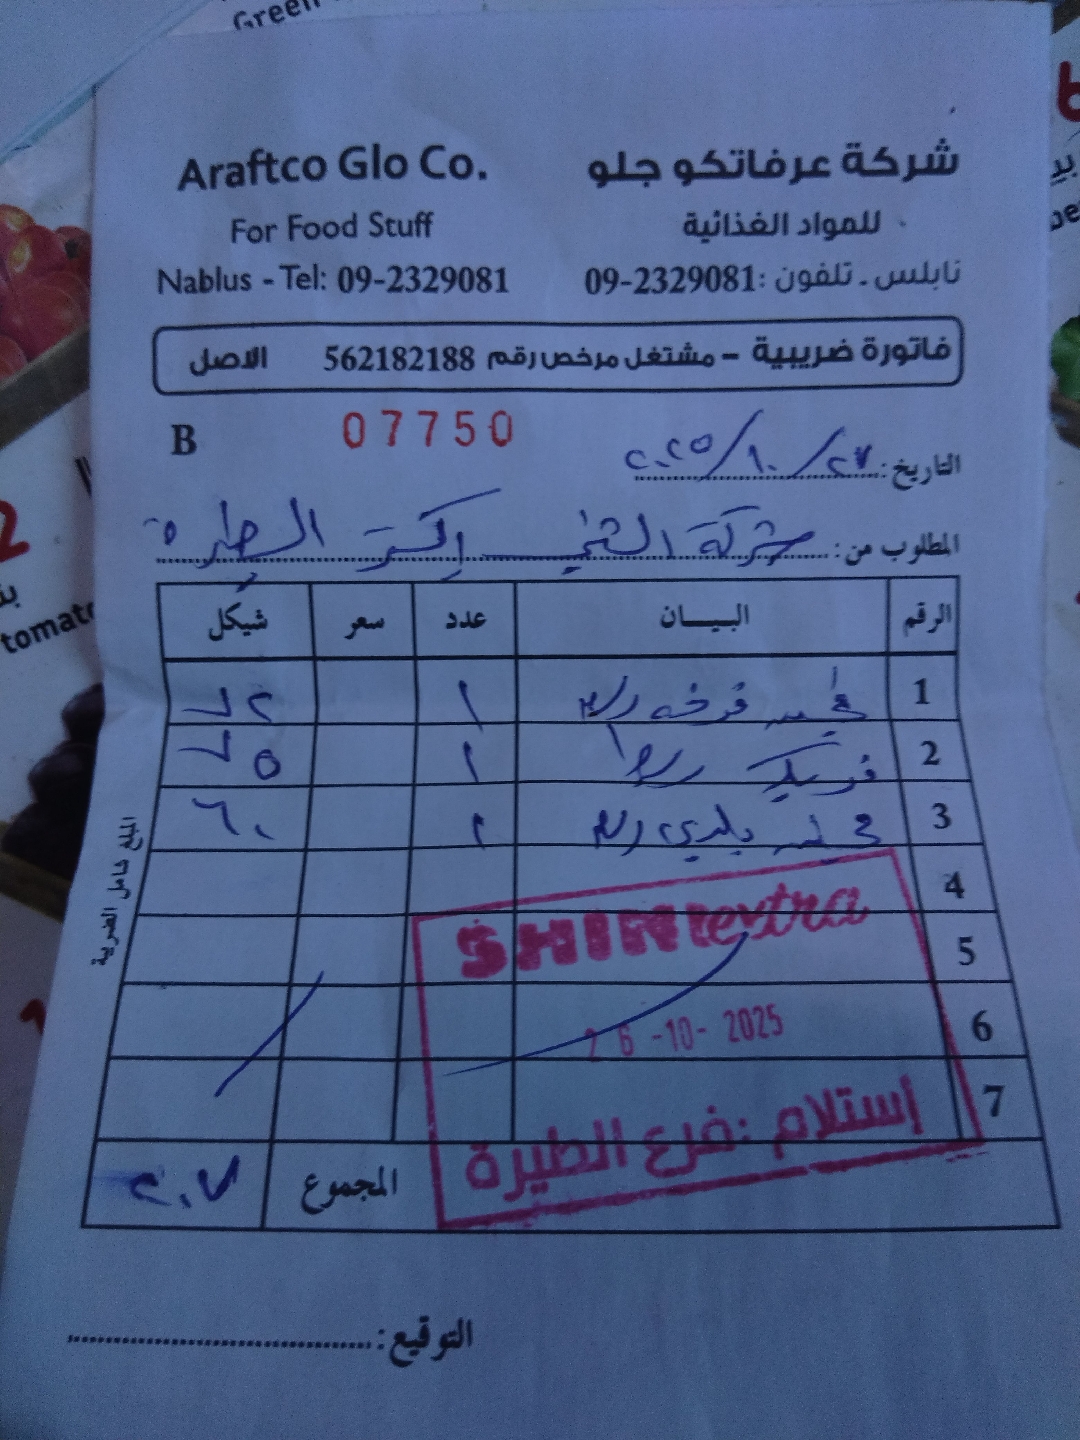 Green
Araftco Glo Co.
شركة عرفاتكو جلو
For Food Stuff
للمواد الغذائية
Nablus - Tel: 09-2329081
نابلس - تلفون :09-2329081
فاتورة ضريبية - مشتغل مرخص رقم 562182188 الاصل
B 07750
التاريخ: ٢٠٢٥/١٠/٢٧
المطلوب من: شركة الشني اكسترا الطيرة
الرقم البيـــان عدد سعر شيكل
1 فرخه ١ ٧٢
2 فريكة ١ ٧٥
3 بلدي ١ ٦٠
4
5
6
7
المبلغ شامل الضريبة
SHINI extra
26-10-2025
إستلام :فرع الطيرة
المجموع ٢٠٧
التوقيع:
2
tomato